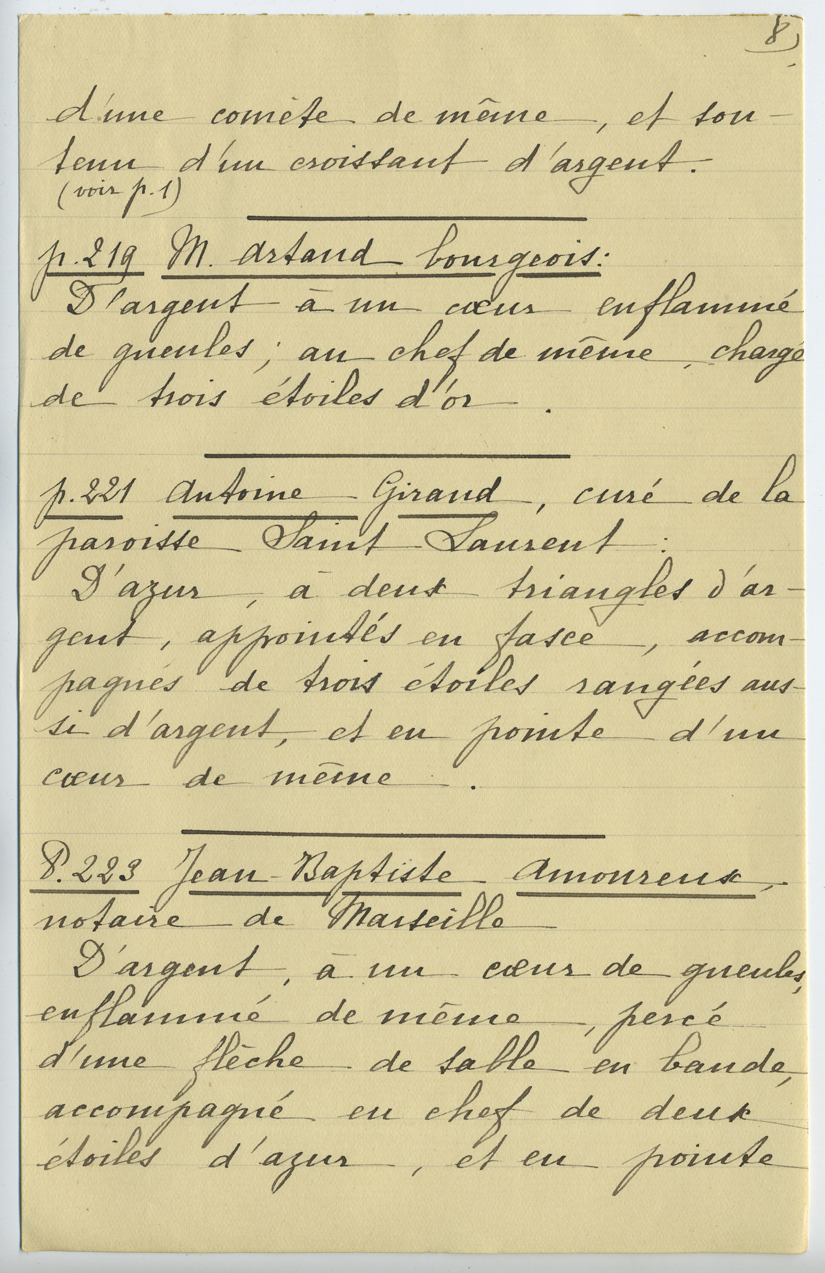 8
d'une comète de même, et sou-
tenu d'un croissant d'argent.
(voir p. 1)
p. 219 M. Artaud bourgeois:
D'argent à un cœur enflammé
de gueules; au chef de même, chargé
de trois étoiles d'or.
p. 221 Antoine Giraud, curé de la
paroisse Saint Laurent:
D'azur, à deux triangles d'ar-
gent, appointés en fasce, accom-
pagnés de trois étoiles rangées aus-
si d'argent, et en pointe d'un
cœur de même.
P. 223 Jean-Baptiste Amoureux,
notaire de Marseille
D'argent, à un cœur de gueules,
enflammé de même, percé
d'une flèche de sable en bande,
accompagné en chef de deux
étoiles d'azur, et en pointe